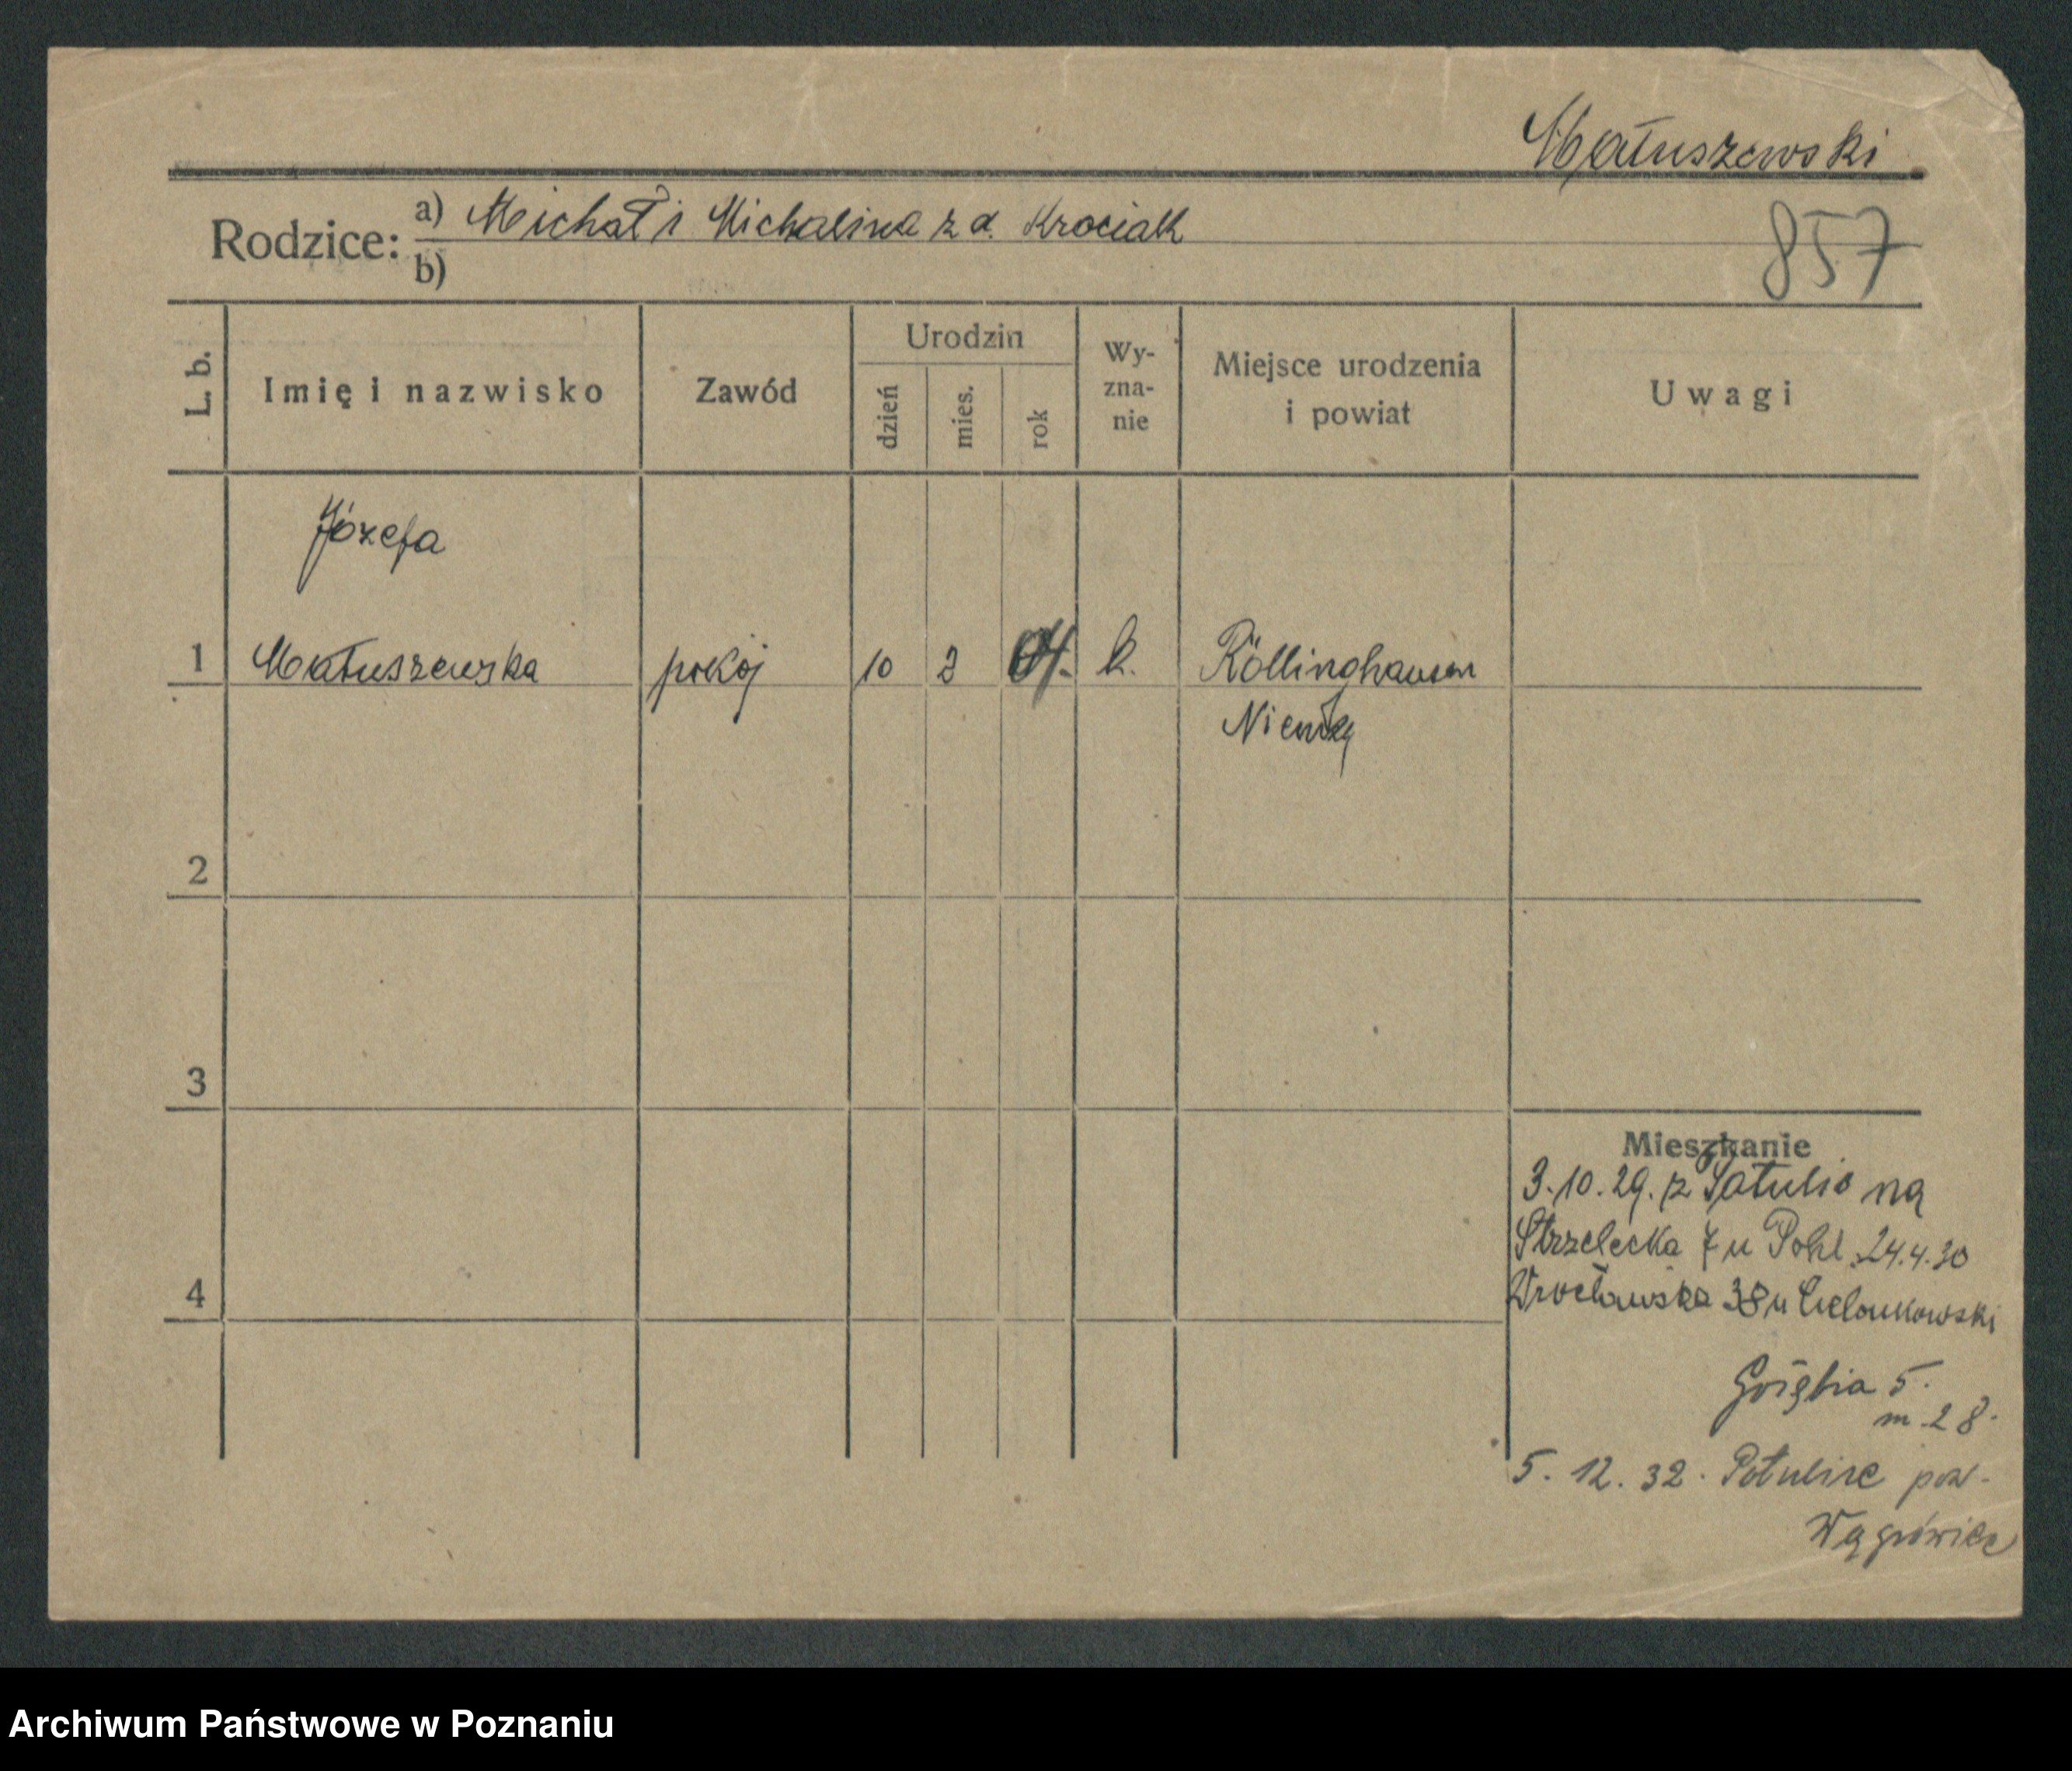 Matuszewski
Rodzice: a) Michał i Michalina z d. Krociak
b)
857
L. b. Imię i nazwisko Zawód Urodzin dzień mies. rok Wy-zna-nie Miejsce urodzenia i powiat Uwagi
Józefa
1 Matuszewska pokój 10 2 04. k. Röllinghausen
Niemcy
2
3
4
Mieszkanie
3.10.29. z na
Strzelecka 7 u Pohl. 24.4.30
Wrocławska 38 u
Gołębia 5.
m. 28.
5. 12. 32. Potulice pow.
Wągrówiec
Archiwum Państwowe w Poznaniu